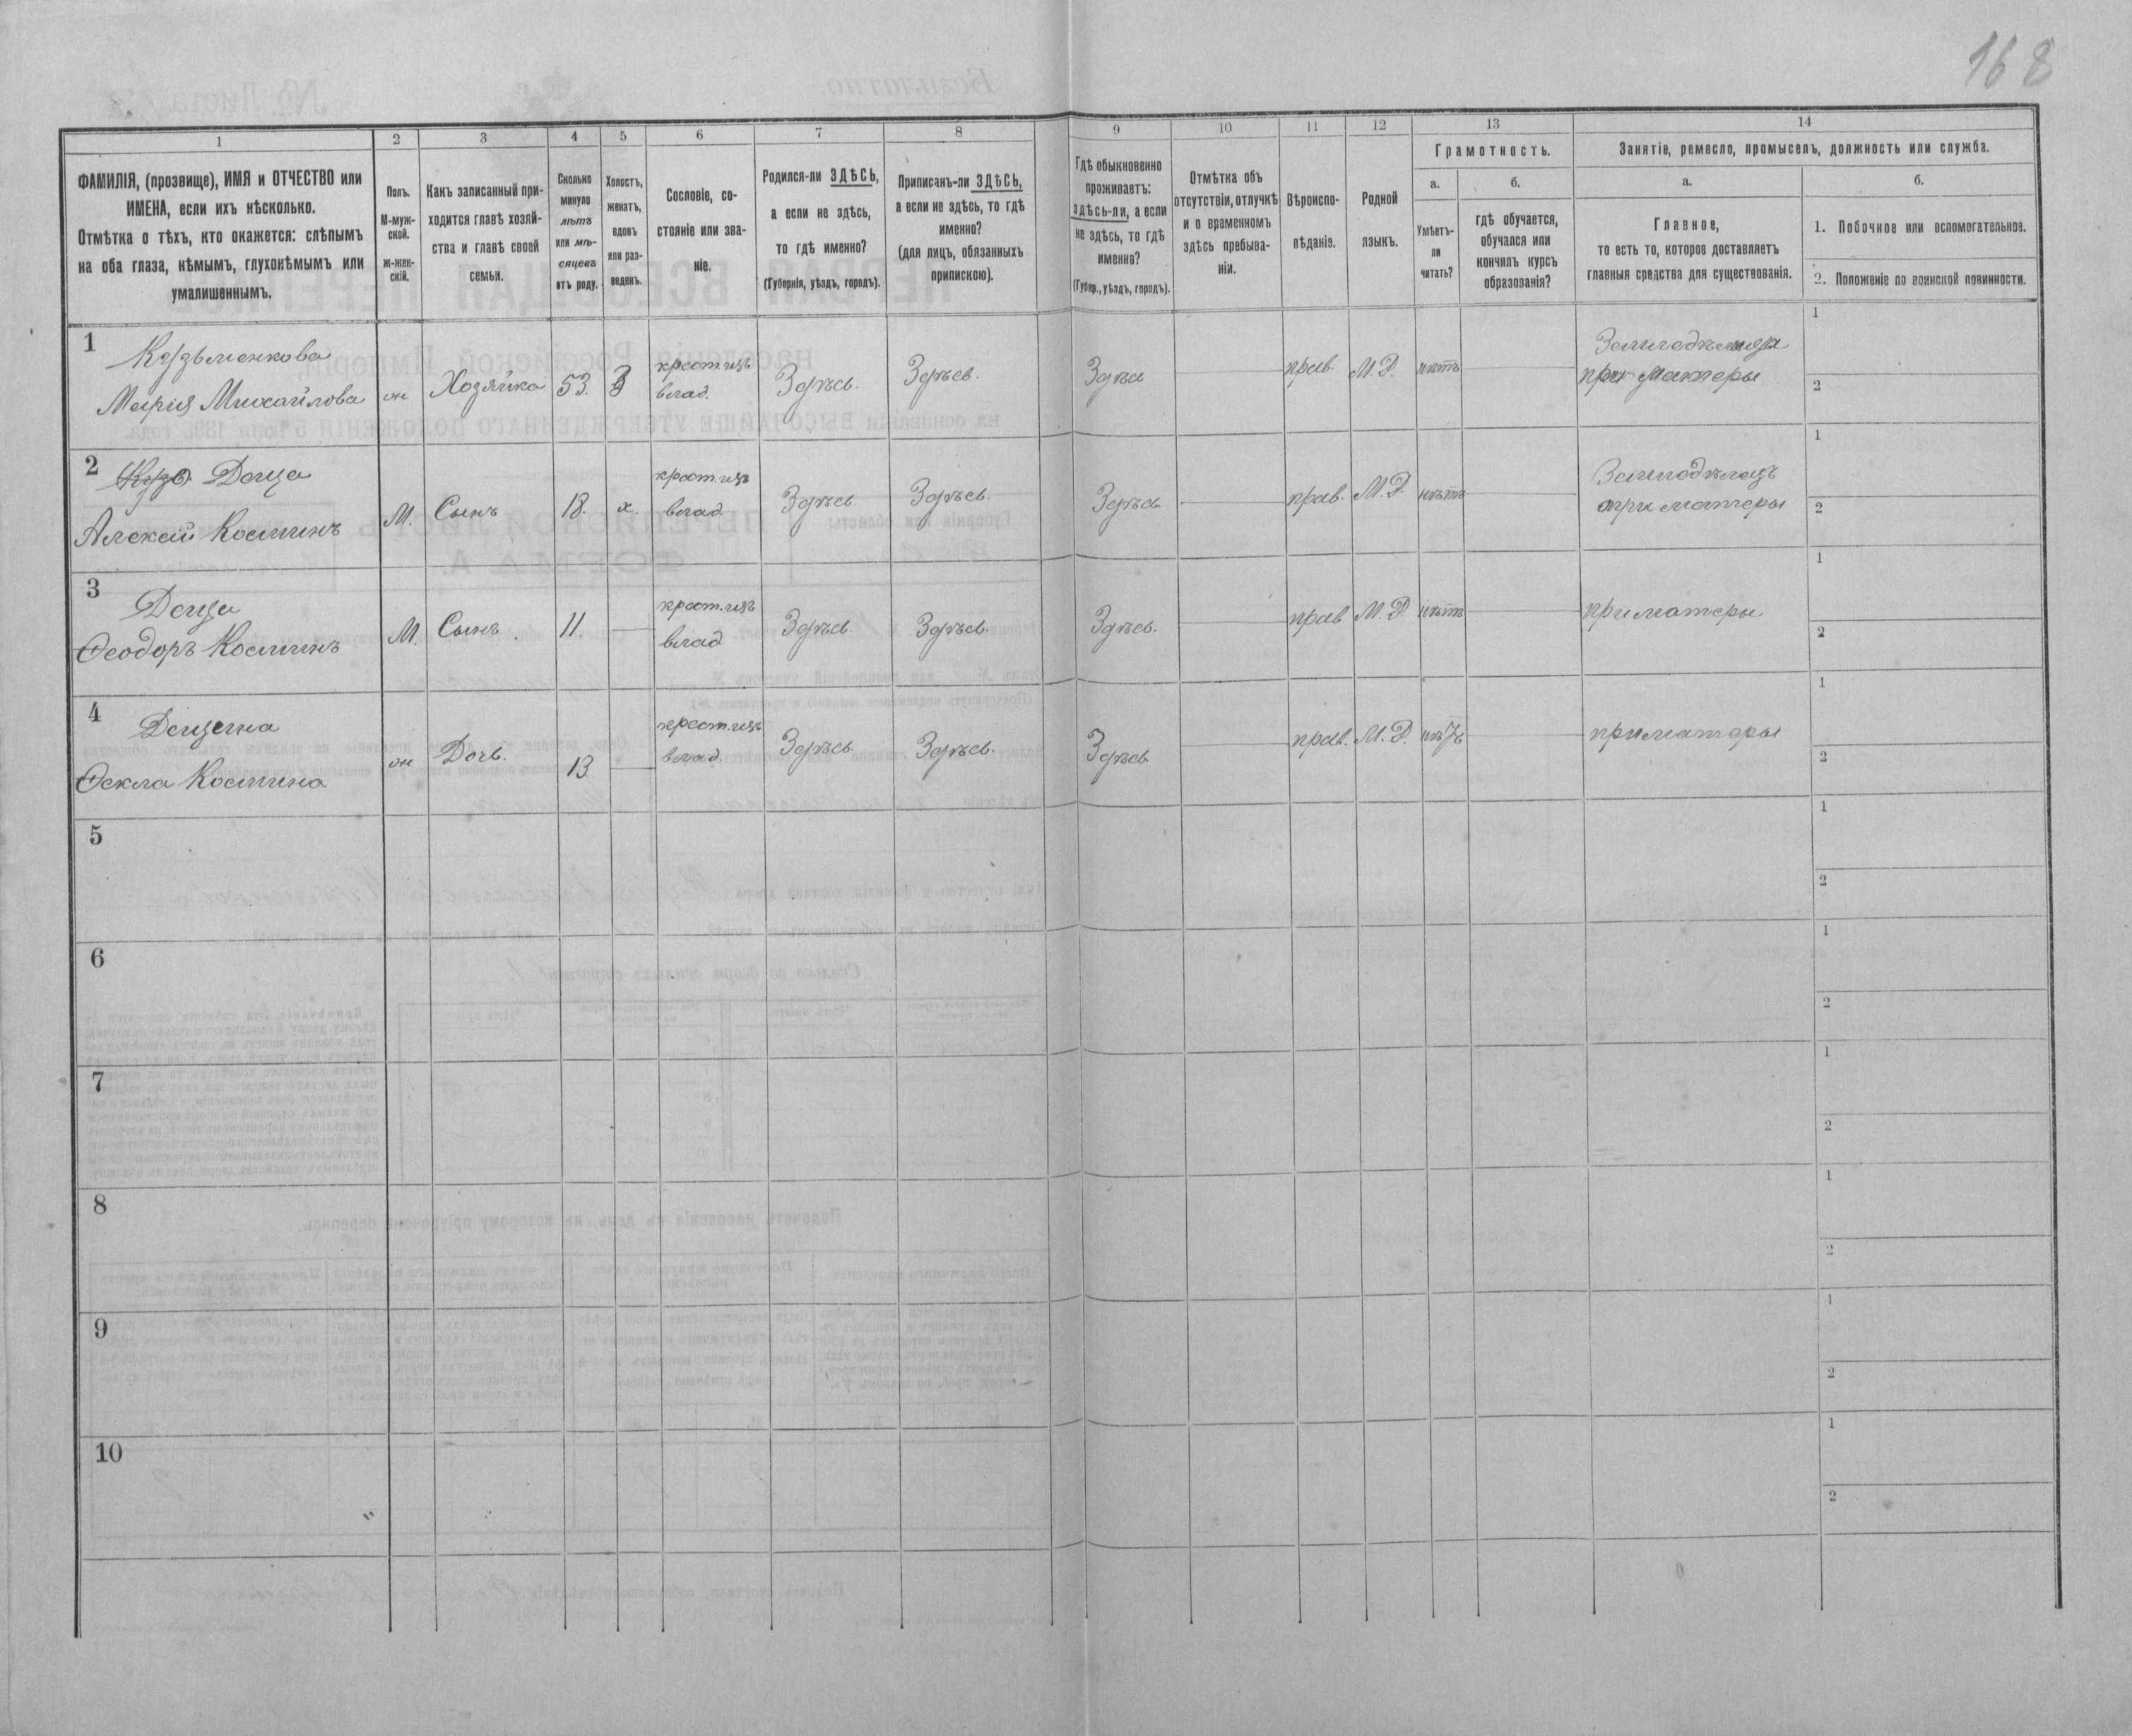 168
1 2 3 4 5 6 7 8 9 10 11 12 13 14
ФАМИЛІЯ, (прозвище), ИМЯ и ОТЧЕСТВО или
ИМЕНА, если ихъ нѣсколько.
Отмѣтка о тѣхъ, кто окажется: слѣпымъ
на оба глаза, нѣмымъ, глухонѣмымъ или
умалишеннымъ.
Полъ.
М-муж-
ской.
ж-жен-
скій.
Какъ записанный при-
ходится главѣ хозяй-
ства и главѣ своей
семьи.
Сколько
минуло
лѣтъ
или мѣ-
сяцевъ
отъ роду.
Холостъ,
женатъ,
вдовъ
или раз-
веденъ.
Сословіе, со-
стояніе или зва-
ніе.
Родился-ли ЗДѢСЬ,
а если не здѣсь,
то гдѣ именно?
(Губернія, уѣздъ, городъ).
Приписанъ-ли ЗДѢСЬ,
а если не здѣсь, то гдѣ
именно?
(для лицъ, обязанныхъ
припискою).
Гдѣ обыкновенно
проживаетъ:
здѣсь-ли, а если
не здѣсь, то гдѣ
именно?
(Губер., уѣздъ, городъ).
Отмѣтка объ
отсутствіи, отлучкѣ
и о временномъ
здѣсь пребыва-
ніи.
Вѣроиспо-
вѣданіе.
Родной
языкъ.
Грамотность.
а.
Умѣетъ-
ли
читать?
б.
гдѣ обучается,
обучался или
кончилъ курсъ
образованія?
Занятіе, ремесло, промыселъ, должность или служба.
а.
Главное,
то есть то, которое доставляетъ
главныя средства для существованія.
б.
1. Побочное или вспомогательное.
2. Положеніе по воинской повинности.
1 Кузьменкова
Марія Михайлова
Хозяйка 53. В крест. изъ
влад. Здѣсь. Здѣсь. Здѣсь прав. М.Р. нѣтъ
при Матеры
1
2
2 Доуца
Алексѣй Косминъ
М. Сынъ 18. х. крест. изъ
влад. Здѣсь. Здѣсь. Здѣсь прав. М.Р. нѣтъ Земледѣлецъ
при матеры
1
2
3 Доуца
Ѳеодоръ Косминъ
М. Сынъ. 11. крест. изъ
влад Здѣсь. Здѣсь. Здѣсь. прав М.Р. нѣтъ при матеры
1
2
4
Ѳекла Космина
Дочь. 13 крест. изъ
влад. Здѣсь. Здѣсь. Здѣсь прав. М.Р. нѣтъ при матеры
1
2
5
1
2
6
1
2
7
1
2
8
1
2
9
1
2
10
1
2